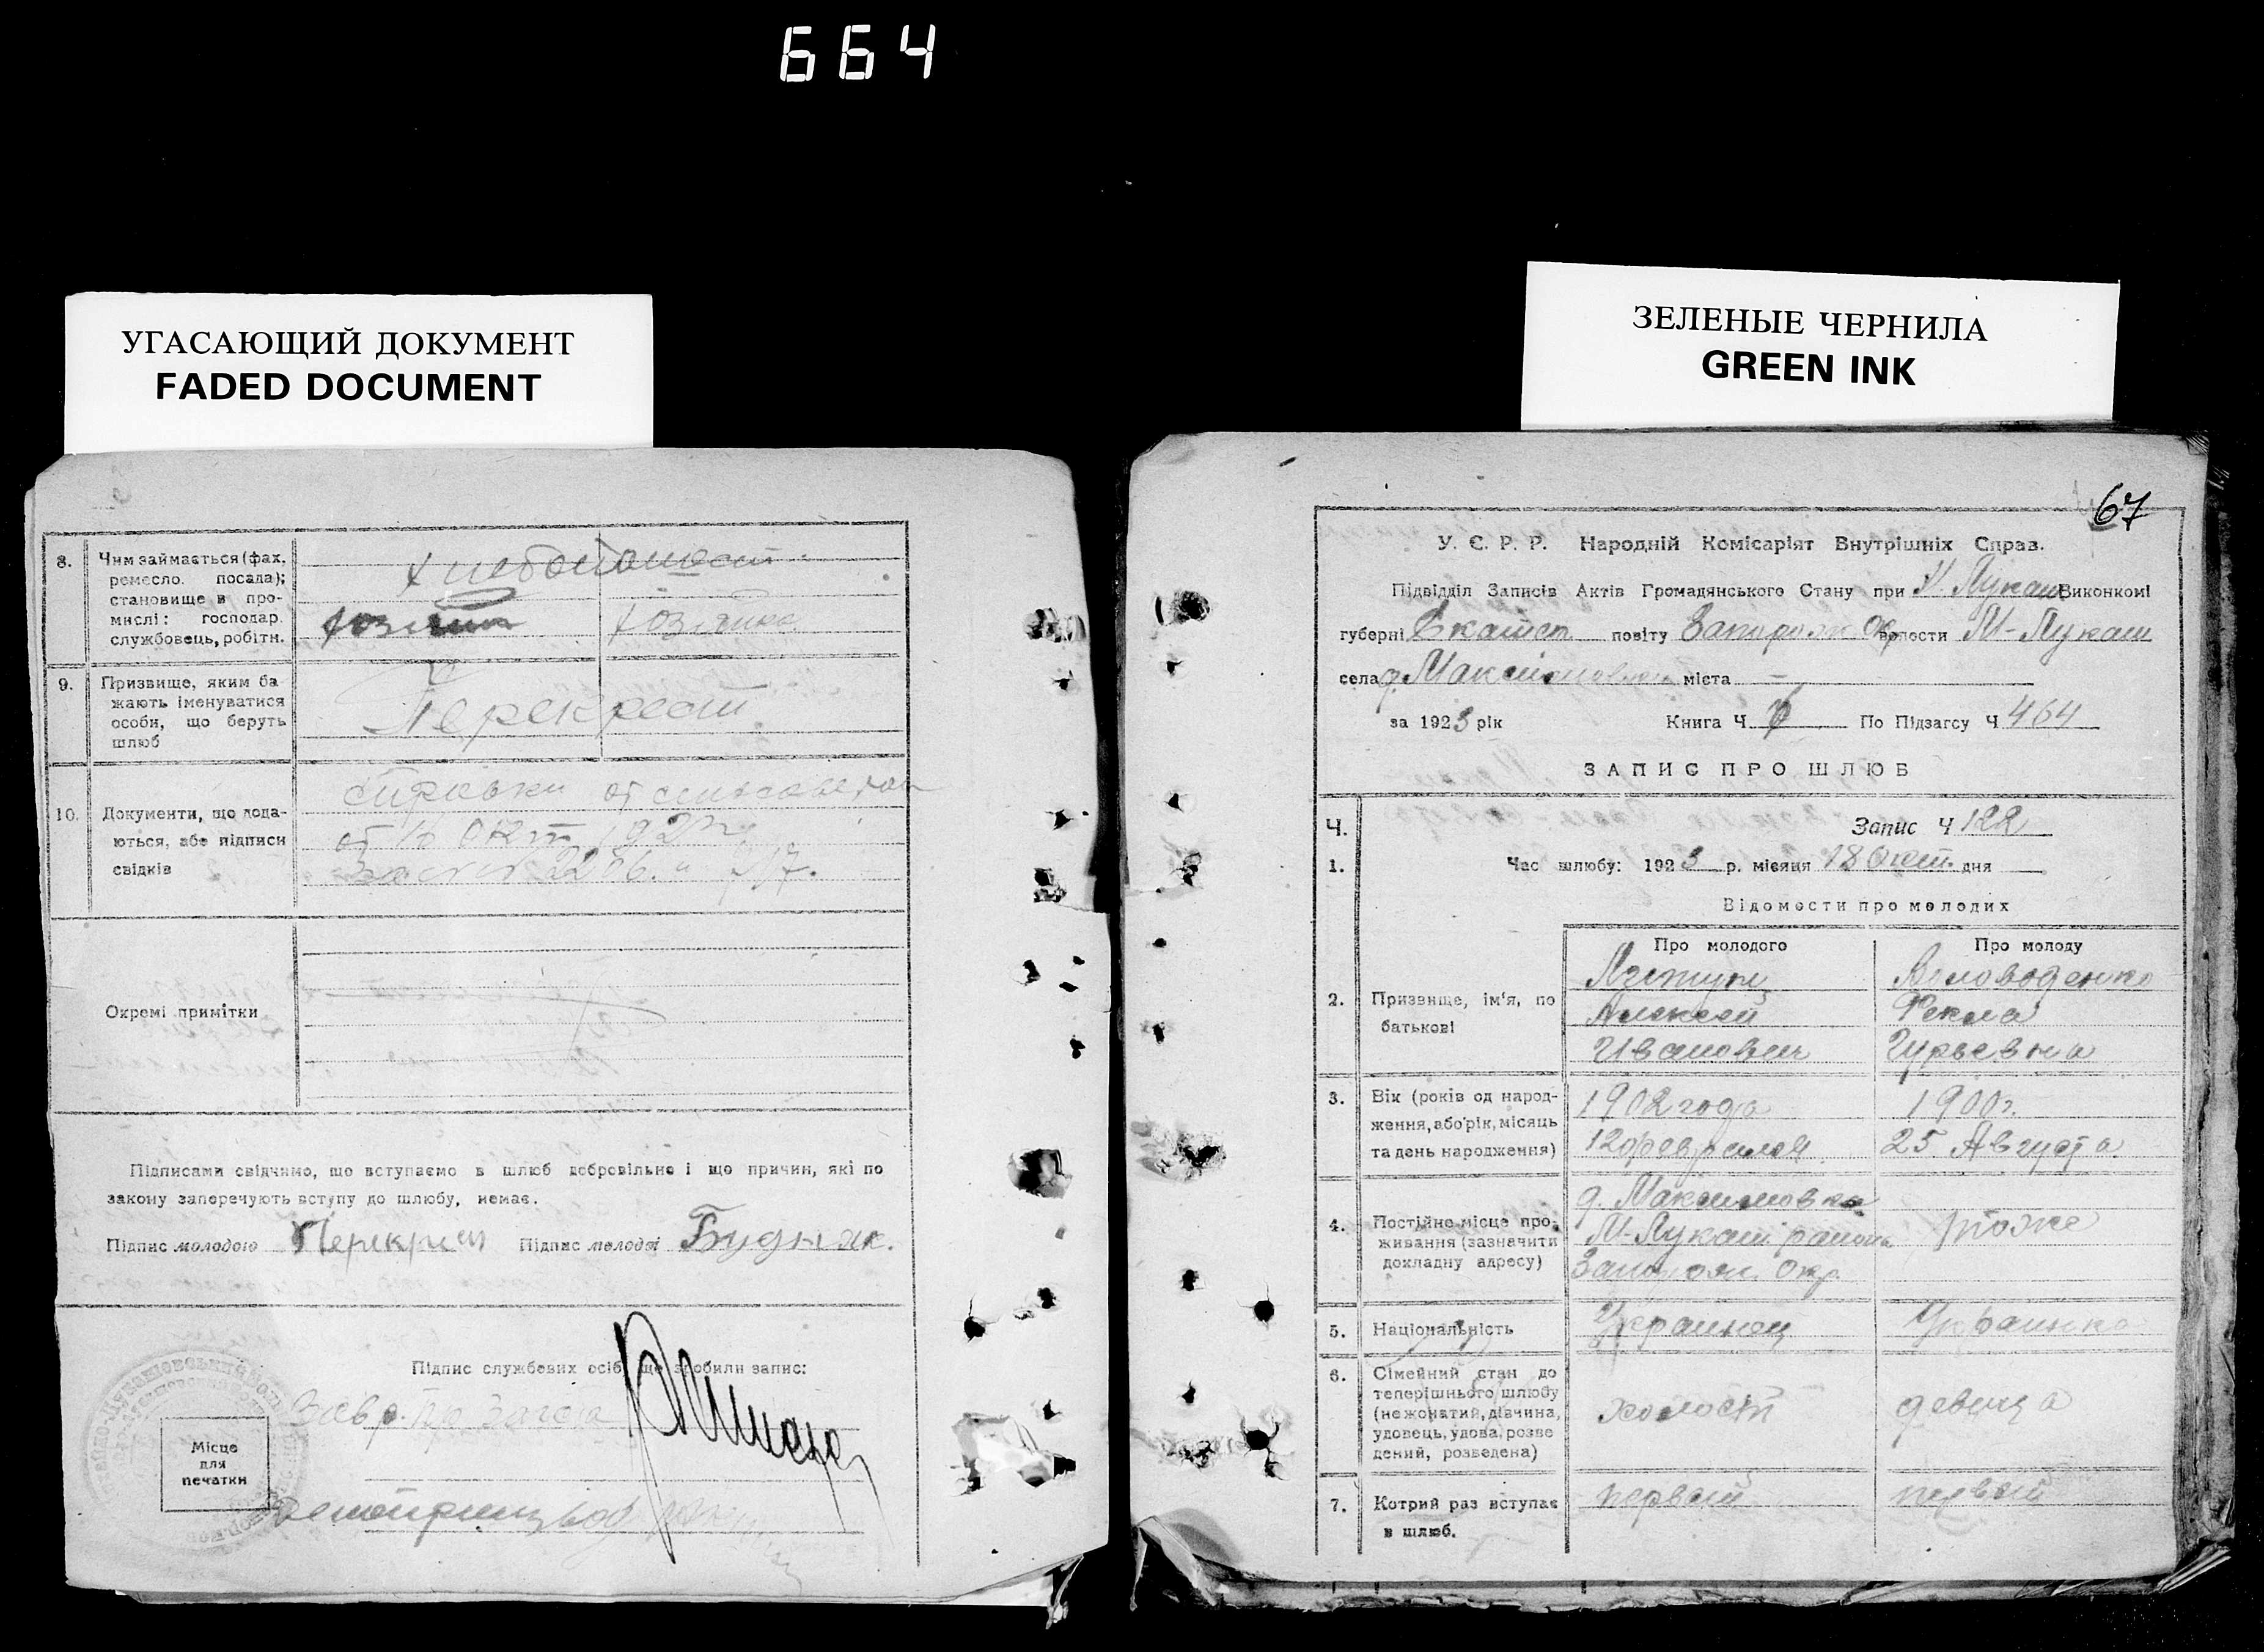 664
УГАСАЮЩИЙ ДОКУМЕНТ
FADED DOCUMENT
ЗЕЛЕНЫЕ ЧЕРНИЛА
GREEN INK
8. Чим займається (фах,
ремесло, посада);
становище в про-
мислі: господар
службовець, робітн.
хлебопашест
хозяин
хозяйка
9. Призвище, яким ба
жають іменуватися
особи, що беруть
шлюб
Перекрест
10. Документи, що дода-
ються, або підписи
свідків
справки от
от 16 Окт 192
За № № 2206 и 717.
Окремі примітки
Підписами свідчимо, що вступаємо в шлюб добровільно і що причин, які по
закону заперечують вступу до шлюбу, немає.
Підпис молодого Підпис молодої Будняк.
Підпис службових осіб, що зробили запис:
Загса
Місце
для
печатки
67
У. С. Р. Р. Народній Комісаріят Внутрішніх Справ.
Підвідділ Записів Актів Громадянського Стану при М. Лукаш Виконкомі
губерні Екат повіту Запорож Окр волости М-Лукаш
села д. міста –
за 1923 рік Книга Ч. По Підзагсу Ч 464
ЗАПИС ПРО ШЛЮБ
Ч. Запис Ч 122
1. Час шлюбу: 1923 р. місяця 18 Окт. дня
Відомости про молодих
Про молодого
Про молоду
2. Призвище, ім'я, по
батькові
Алексей
Иванович
Фекла
Гурьевна
3. Вік (років од народ-
ження, або рік, місяць
та день народження)
1902 года
12 февраля
1900 г.
25 Августа
4. Постійне місце про-
живання (зазначити
докладну адресу)
д. Максимовка
М-Лукаш района
Запорож. Окр.
тоже
5. Національність
Украинец
Украинка
6. Сімейний стан до
теперішнього шлюбу
(нежонатий, дівчина,
удовець, удова, розве
дений, розведена)
холост
девица
7. Котрий раз вступає
в шлюб.
первый
первый